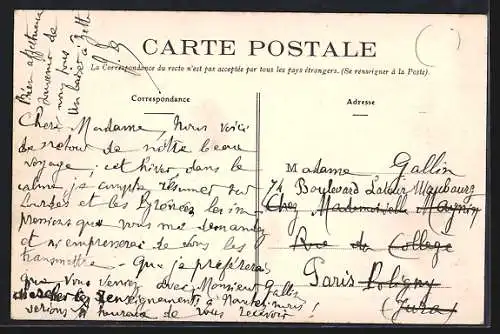 CARTE POSTALE
La Correspondance du recto n'est pas acceptée par tous les pays étrangers. (Se renseigner à la Poste).
Correspondance
Adresse
Bien affectueux
souvenir de
nous tous
Un baiser à
Chère Madame, Nous voici
de retour de notre beau
voyage; cet hiver dans le
calme je compte résumer sur
Lourdes et les Pyrénées les im-
pressions que vous me demandez
et m'empresserai de vous les
transmettre. Que je préférerais
que vous veniez avec Monsieur Gallin
chercher les renseignements à
serions si heureux de vous recevoir!
Madame Gallin
74 Boulevard Latour Maubourg
Chez Mademoiselle
Rue du College
Paris Poligny
(Jura)